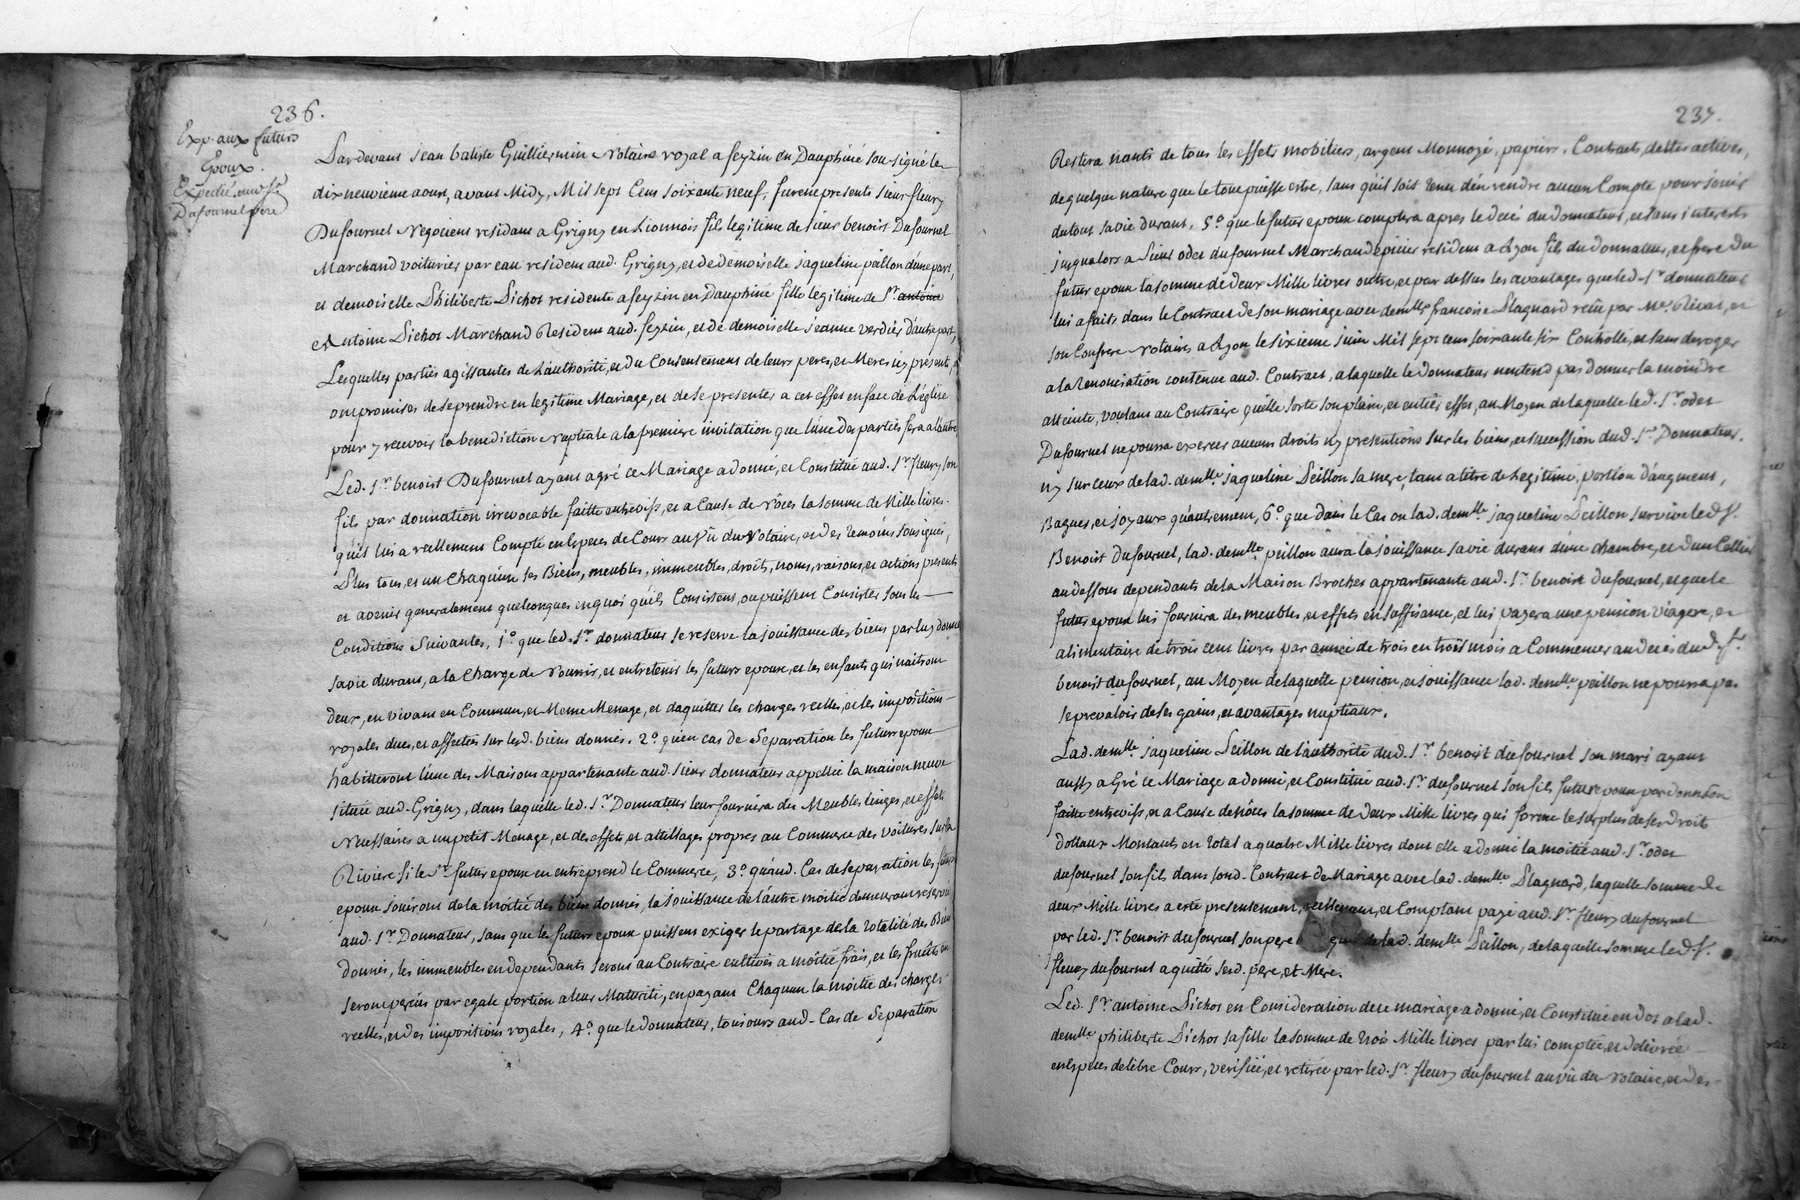 236.
Exp. aux futurs
Epoux.
Expedié aud. Sr
Dufournel pere
Pardevant jean batiste Guilliermin Notaire royal a feyzin en Dauphiné sousigné le
dix neuvieme aoust, avant Midy, Mil sept Cens soixante neuf, furent presents sieur fleury
Dufournel Negotient residant a Grigny en Lionnois fils legitime de sieur benoist Dufournel
Marchand voiturier par eau resident aud. Grigny, et de demoiselle jaqueline peillon d'une part,
et demoiselle Philiberte Pichot residente a feyzin en Dauphiné fille legitime de Sr antoine
Antoine Pichot Marchand Resident aud. feyzin, et de demoiselle jeanne verdier d'autre part,
Lesquelles parties agissantes de L'authorité, et du Consentement de leurs peres, et Meres icy presents,
ont promises de se prendre en legitime Mariage, et de se presenter a cet effet en face de L'église
pour y recevoir la benediction nuptiale a la premiere invitation que l'une des parties fera a l'autre
Led. Sr benoist Dufournel ayant agré ce Mariage a donné, et Constitué aud. Sr fleury son
fils par donnation irrevocable faitte entrevifs, et a Cause de nôces la somme de Mille livres.
qu'il lui a reellement Compté en Especes de Cours au vû du Notaire, et des temoins sousignés,
Plus tous, et un Chaquun ses Biens, meubles, immeubles, droits, noms, raisons, et actions presents
et avenir generalement quelconques en quoi qu'ils Consistent, ou puissent Consister sous les
Conditions Suivantes, 1º que led. Sr donnateur se reserve la jouissance des biens par luy donnés
sa vie durant, a la Charge de nourrir, et entretenir les futurs epoux, et les enfants qui naitront
d'eux, en vivant en Commun, et Meme Menage, et d'aquitter les charges reelles, et les impositions
royales dues, et affectées sur lesd. biens donnés. 2º qu'en cas de Separation les futurs epoux
habitteront l'une des Maisons appartenante aud. sieur donnateur appellée la maison neuve
située aud. Grigny, dans laquelle led. Sr Donnateur leur fournira des Meubles linges, et effets
Necessaires a un petit Menage, et des effets, et attellages propres au Commerce des voitures sur la
Riviere si le Sr futur epoux en entreprend le Commerce, 3º qu'aud. Cas de separation les futurs
epoux jouiront de la moitié des biens donnés, la jouissance de l'autre moitié demeurant reservée
aud. Sr Donnateur, sans que les futurs epoux puissent exiger le partage de la totalité des Biens
donnés, les immeubles en dependants seront au Contraire cultivés a moitié frais, et les fruits en
seront perçus par egale portion a leur Maturité, en payant Chaquun la moitié des charges
reelles, et des impositions royales, 4º que le donnateur, toujours aud. Cas de Separation
237.
Restera nanti de tous les effets mobiliers, argent Monnoyé, papiers, Contracts, dettes actives,
de quelque nature que le tout puisse estre, sans qu'il soit tenu d'en rendre aucun Compte pour jouir
du tout sa vie durant, 5º que le futur epoux comptera apres le decés du donnateur, et sans interests
jusqu'alors a Sieur odet dufournel Marchand epicier resident a Lyon fils du donnateur, et frere du
futur epoux la somme de deux Mille livres outre, et par dessus les avantages que led. Sr donnateur
lui a faits dans le Contract de son mariage avec demlle francoise Plagnard reçu par Me Ricat, et
son Confrere Notaires a Lyon le sixieme juin Mil sept cens soixante six Contrôllé, et sans deroger
a la renonciation contenue aud. Contract, a laquelle le donnateur n'entend pas donner la moindre
atteinte, voulant au Contraire qu'elle sorte son plain, et entier effet, au Moyen de laquelle led. Sr odet
Dufournel ne pourra exercer aucuns droits ny pretentions sur les biens, et succession dud. Sr Donnateur,
ny sur ceux de lad. demlle jaqueline Peillon sa mere, tant a titre de Legitime, portion d'augment,
Bagues, et joyaux qu'autrement, 6º que dans le Cas ou lad. demlle jaqueline Peillon survive led. Sr
Benoist Dufournel, lad. demlle peillon aura la jouissance sa vie durant d'une chambre, et d'un Cellier
au dessous dependants de la Maison Broches appartenante aud. Sr benoist dufournel, et que le
futur epoux lui fournira des meubles, et effets en suffisance, et lui payera une pension viagere, et
alimentaire de trois cent livres par année de trois en trois mois a Commencer au decés dud. Sr
benoist dufournel, au Moyen de laquelle pension, et jouissance lad. demlle peillon ne pourra pas
se prevaloir de ses gains, et avantages nuptiaux.
Lad. demlle jaqueline Peillon de l'authorité dud. Sr benoist dufournel son mari ayant
aussy aGré ce Mariage a donné, et Constitué aud. Sr dufournel son fils futur epoux par donnation
faitte entrevifs, et a Cause de nôces la somme de deux Mille livres qui forme le surplus de ses droits
dottaux Montants en total a quatre Mille livres dont elle a donné la moitié aud. Sr odet
dufournel son fils dans sond. Contract de Mariage avec lad. demlle Plagnard, laquelle somme de
deux Mille livres a esté presentement, reellement, et Comptant payé aud. Sr fleury dufournel
par led. Sr benoist dufournel son pere de lad. demlle Peillon, de laquelle somme led. Sr
fleury dufournel a quitté sesd. pere, et Mere.
Led. Sr antoine Pichot en Consideration de ce mariage a donné, et Constitué en dot a lad.
demlle philiberte Pichot sa fille la somme de trois Mille livres par lui comptée, et delivrée
en Especes de libre Cours, verifiée, et retirée par led. Sr fleury dufournel au vû du Notaire, et des